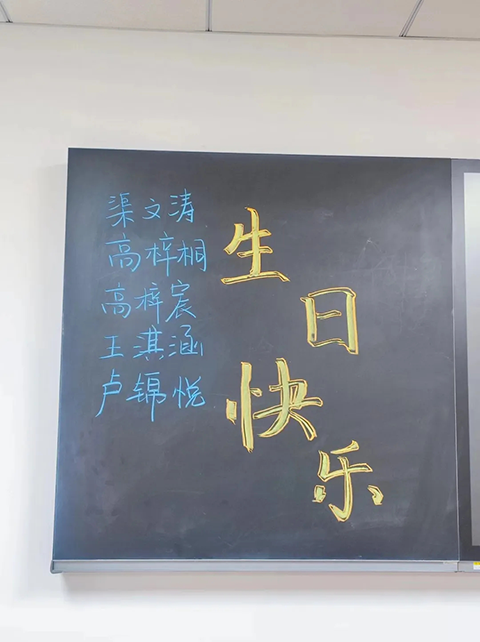 渠文涛
高梓桐
高梓宸
王淇涵
卢锦悦
生
日
快
乐